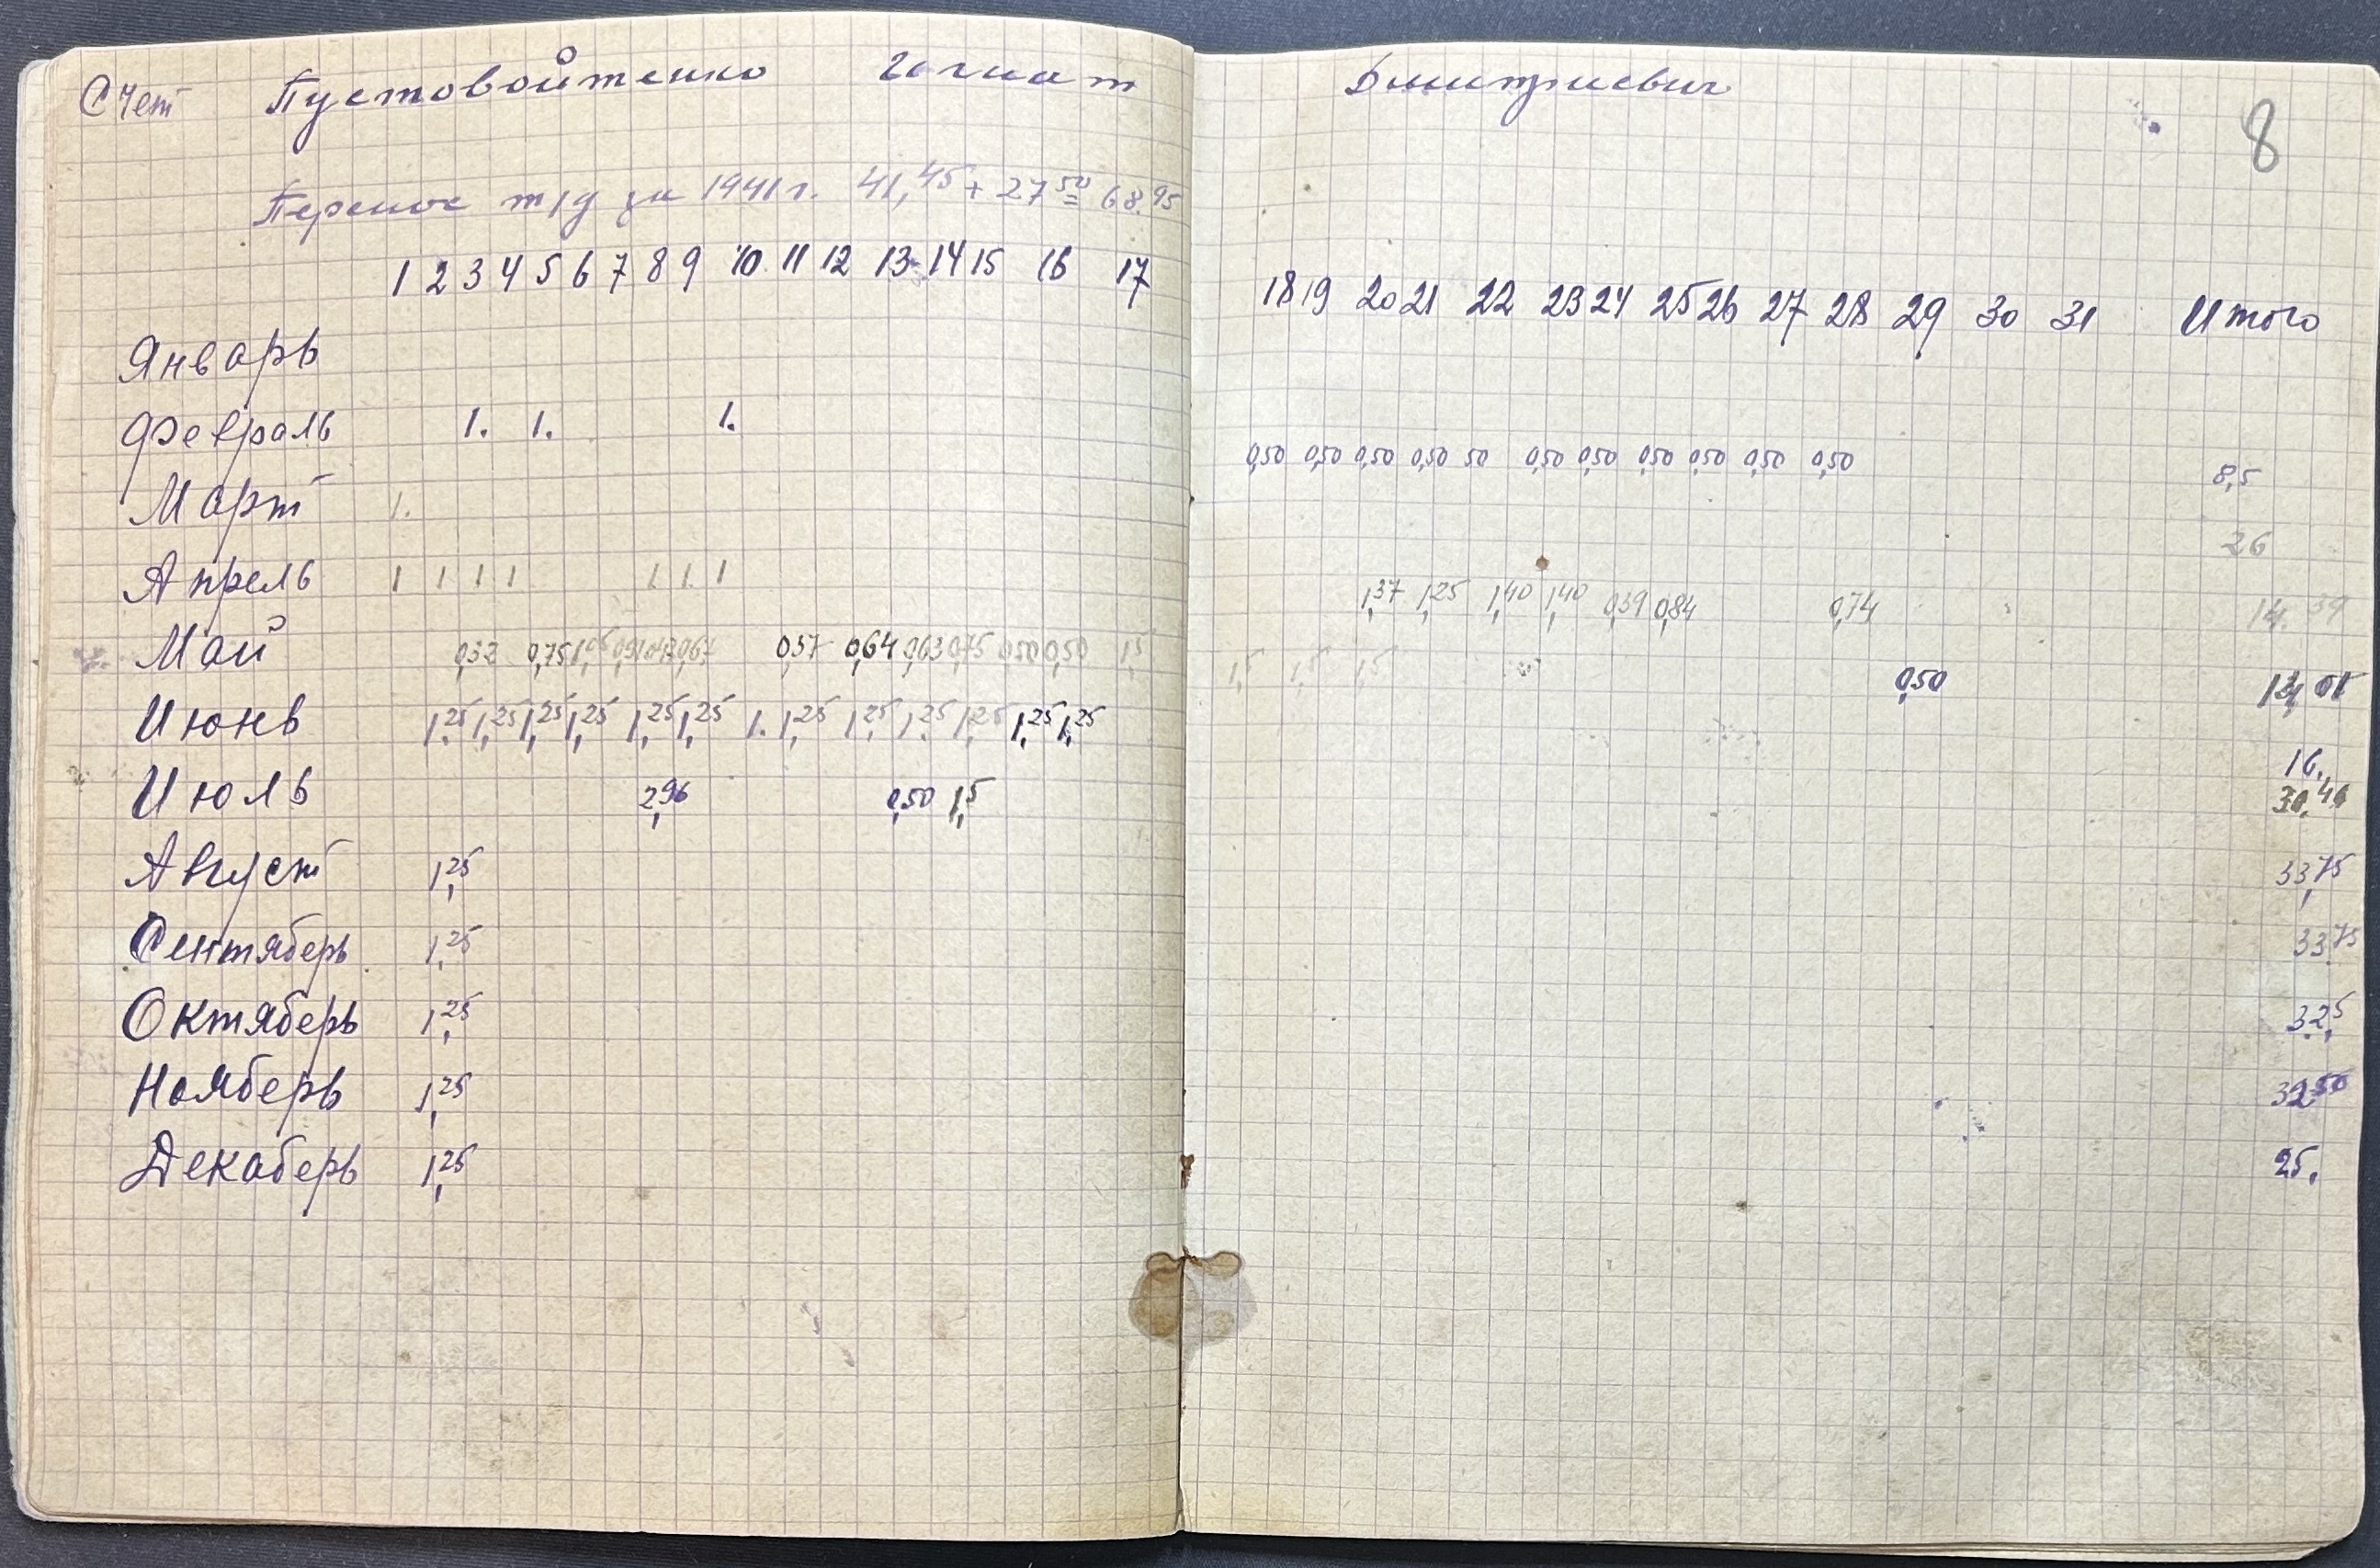 Счет Пустовойтенко Игнат Дмитриевич
8
Перенос т/д за 1941 г. 41,45 + 27 50 = 68.95
1 2 3 4 5 6 7 8 9 10 11 12 13 14 15 16 17 18 19 20 21 22 23 24 25 26 27 28 29 30 31 Итого
Январь
Февраль 1. 1. 1. 0,50 0,50 0,50 0,50 50 0,50 0,50 0,50 0,50 0,50 0,50 8,5
Март 1. 26
Апрель 1 1 1 1 1. 1. 1 1,37 1,25 1,40 1,40 0,39 0,84 0,74 14.39
Май 0,32 0,75 0,67 0,37 0,64 0,63 0,75 0,50 0,50 1,5 1,5 1,5 1,5 0,50
Июнь 1,25 1,25 1,25 1,25 1,25 1,25 1. 1,25 1,25 1,25 1,25 1,25 1,25 16.
Июль 2,96 0,50 1,5
Август 1,25 33,75
Сентяберь 1,25 33,75
Октяберь 1,25 32,5
Нояберь 1,25 32 50
Декаберь 1,25 25.